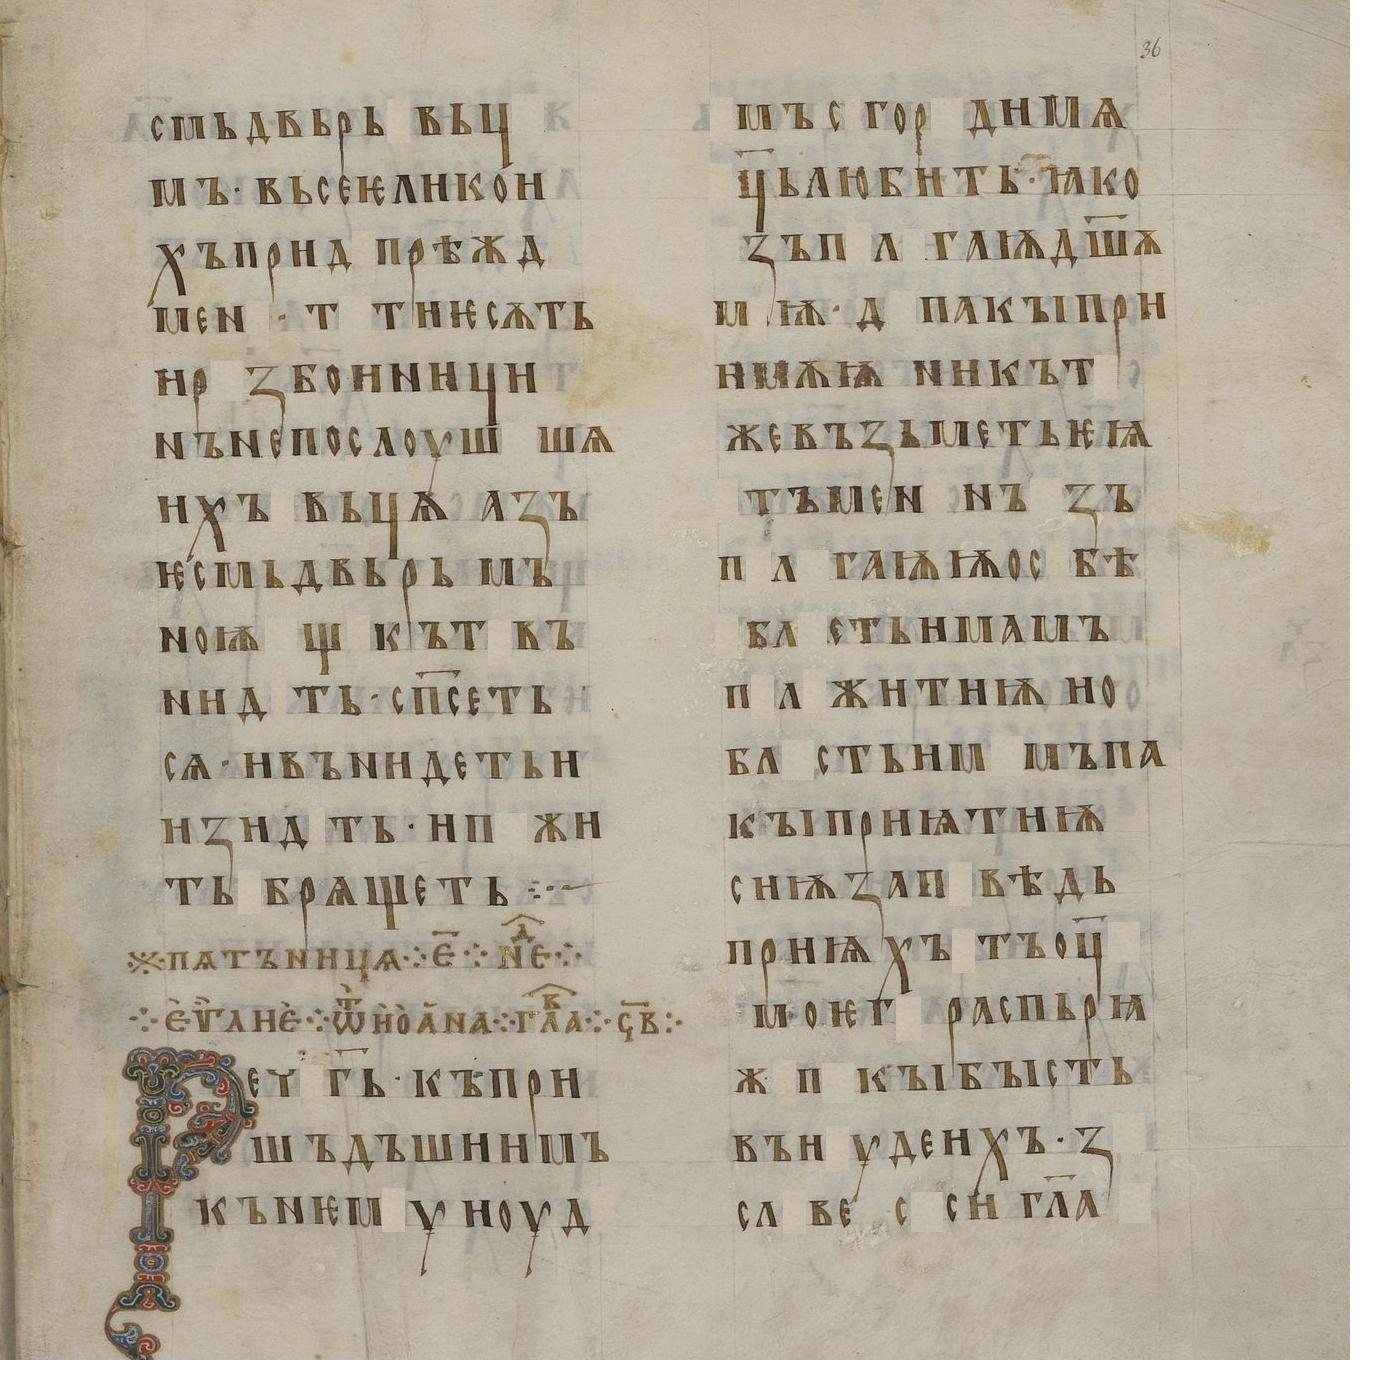 36
смьдвьрь вьц
мъ· вьсеѥликон
хъприд прѣжд
мен · т тиѥсѫть
ир збоиници
нънепослоуш шѧ
ихъ вьцѧ азъ
ѥсмьдвьрь мъ
ноѭ щ къ т въ
нид ть·сп҃сеть
сѧ·ивънидетьи
изид ть·ип жи
ть брѧщеть ⁘~
※пѧтъницѧ·е҃⁘неⷣ⁘
⁘еѵ҃глие⁘ѿиоана⁘глⷡ҇а⁘ѕ҃в⁘
Реч г҃ь·къпри
шъдъшиимъ
кънѥм у ноуд
мъс гор димѧ
ц҃ьлюбить·ꙗко
зъп л гаѭд҃шѫ
м ѭ· д пакꙑпри
имѫѭ никът
жевъзьметьѥѩ
тъмен нъ зъ
п л гаѭѭос бѣ
бл стьимамъ
п л житиѭ ио
бл стьим мъпа
кꙑприѩтиѭ
сиѭзап вѣдь
приѩхъ тъоц҃
моѥг распьрꙗ
ж п кꙑбꙑсть
вън удеихъ· з
сл ве с си гл҃а